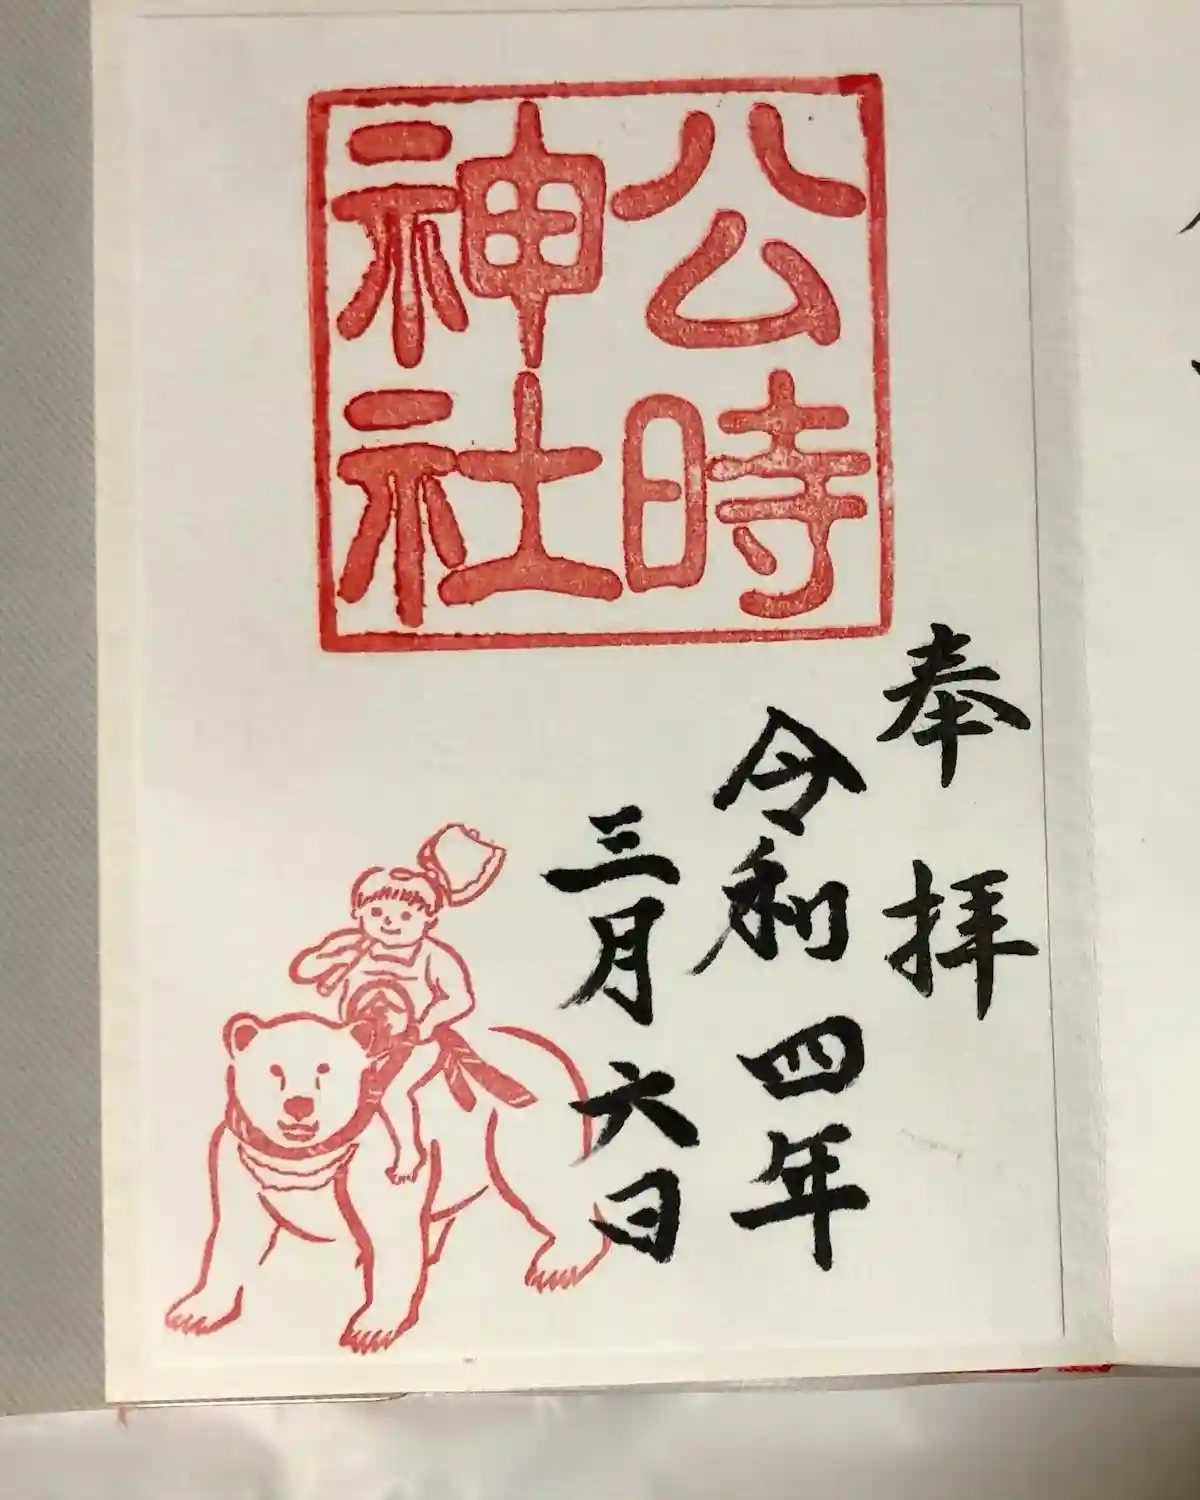 公時
神社
奉拝
令和四年
三月六日